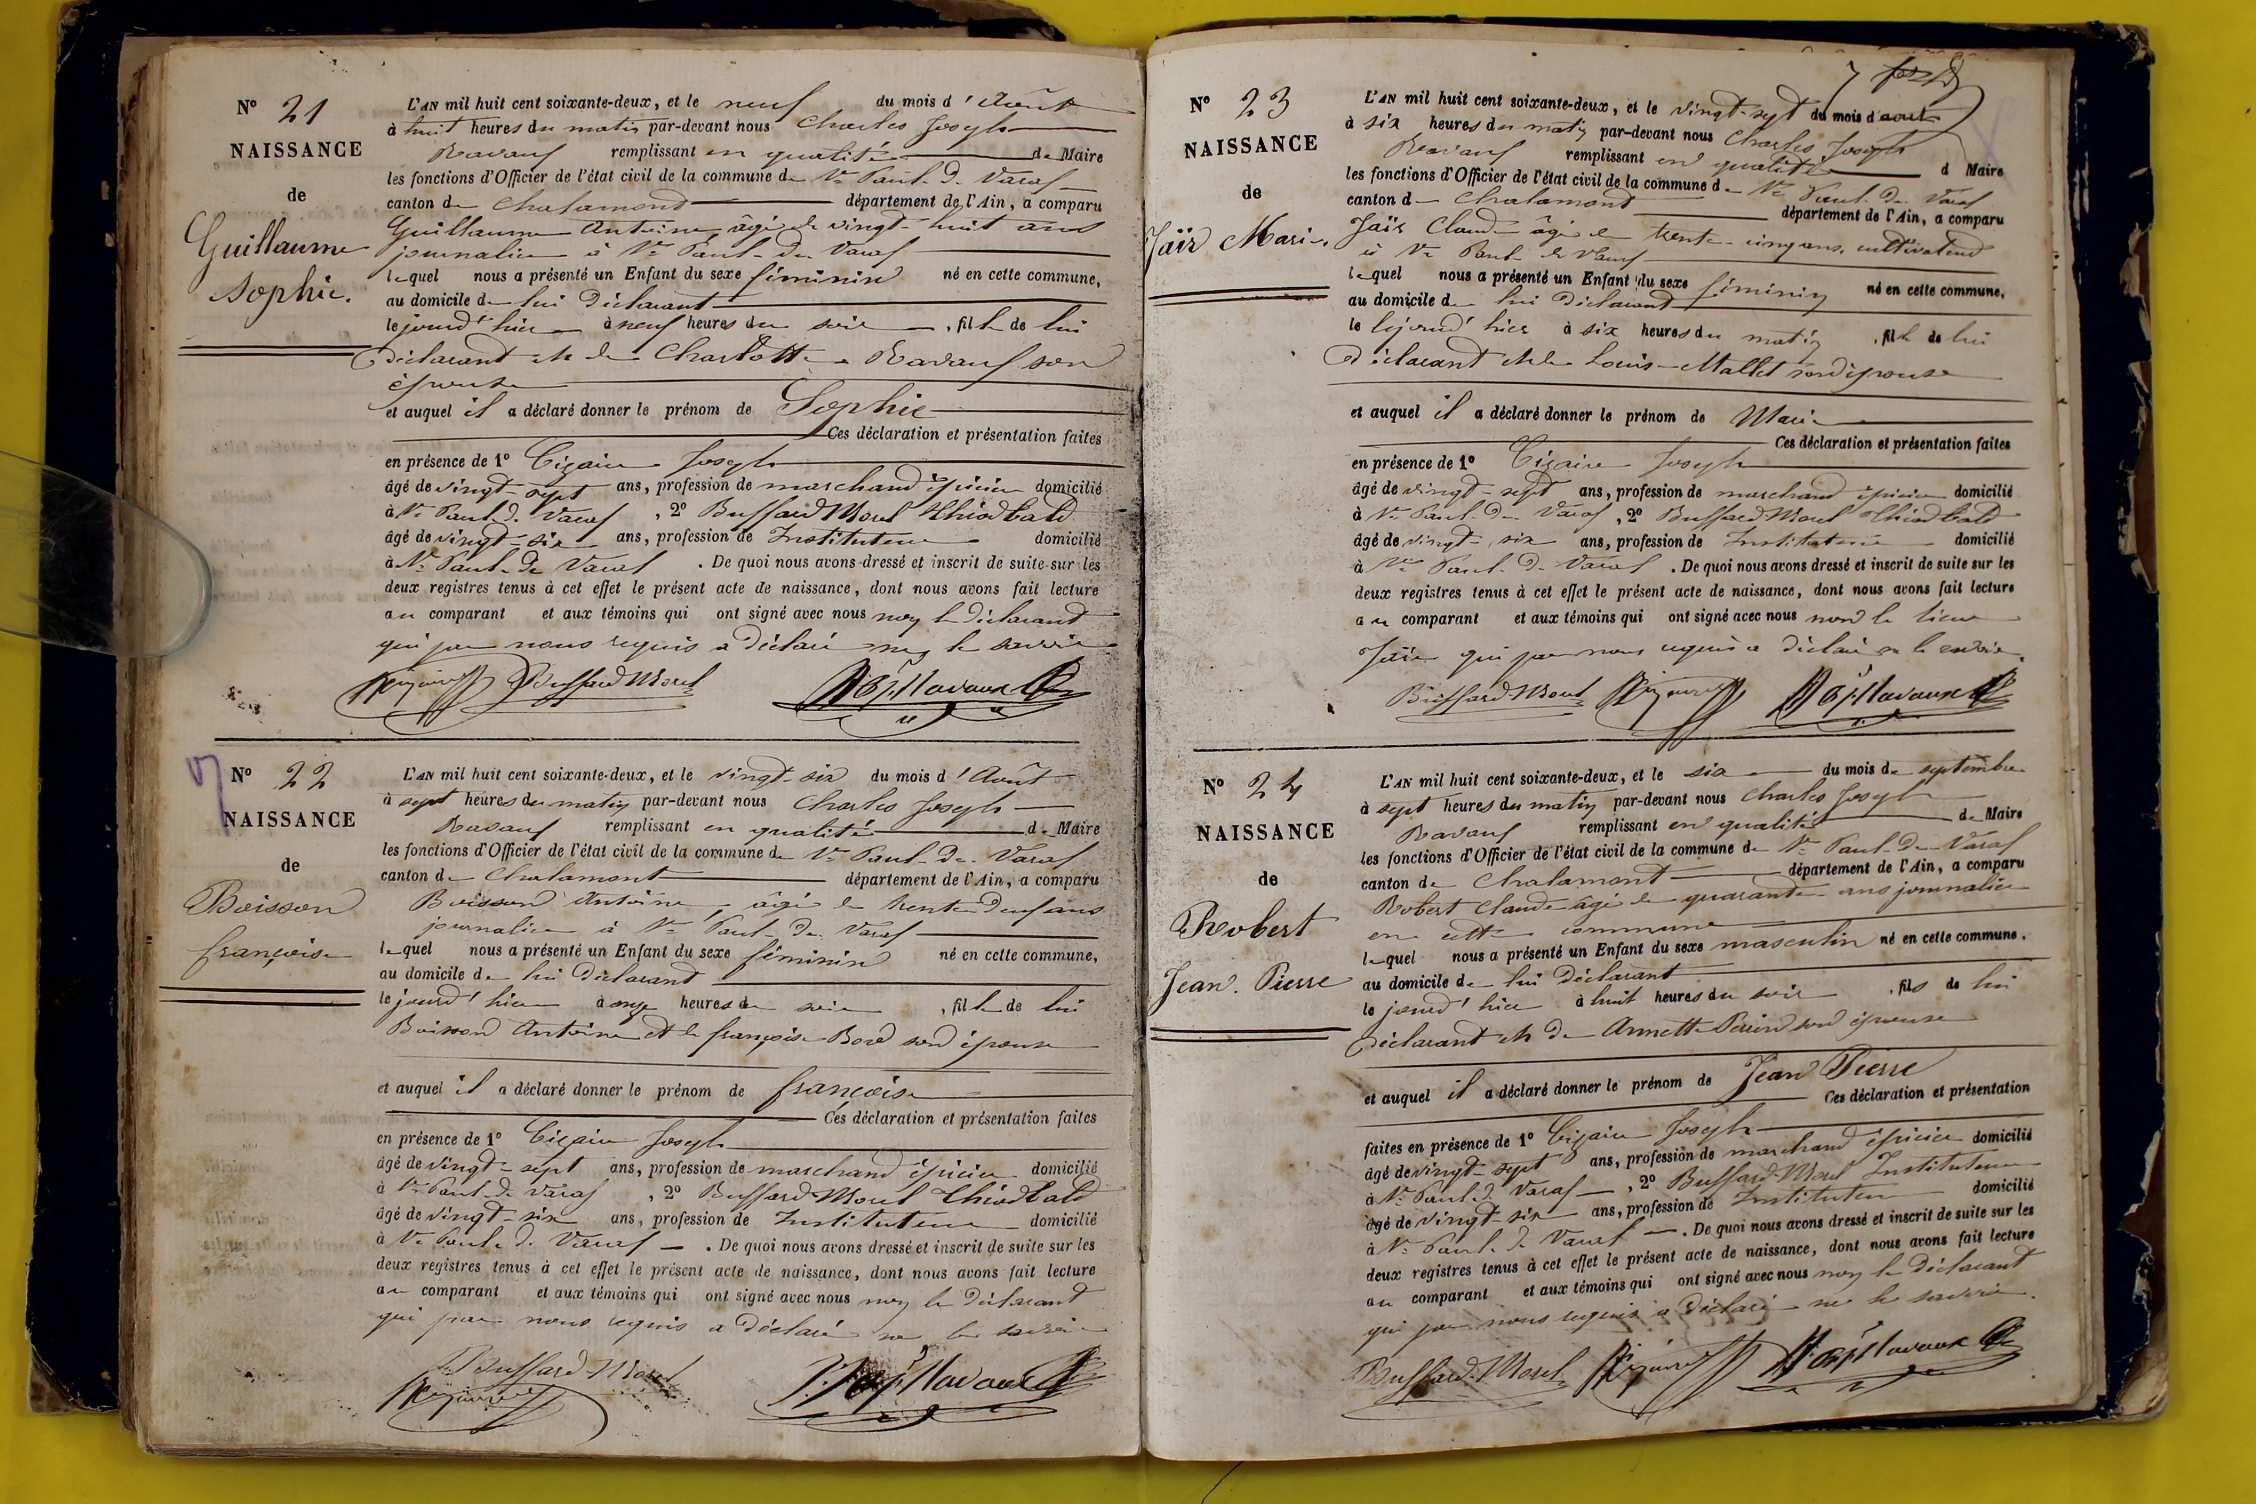 N° 21
NAISSANCE
de
Guillaume
Sophie.
L'AN mil huit cent soixante-deux, et le neuf du mois d'Août
à huit heures du matin par-devant nous Charles Joseph
Ravaux remplissant en qualité de Maire
les fonctions d'Officier de l'état civil de la commune de St Paul de Varax
canton de Chalamont département de l'Ain, a comparu
Guillaume Antoine âgé de vingt-huit ans
journalier à St Paul de Varax
lequel nous a présenté un Enfant du sexe féminin né en cette commune,
au domicile de lui déclarant
le jourd'hier à neuf heures du soir, fille de lui
déclarant et de Charlotte Ravaux son
épouse
et auquel il a déclaré donner le prénom de Sophie
Ces déclaration et présentation faites
en présence de 1° Joseph
âgé de vingt-sept ans, profession de marchand épicier domicilié
à St Paul de Varax, 2° Buffard Morel Thiodbald
âgé de vingt-six ans, profession de Instituteur domicilié
à St Paul de Varax. De quoi nous avons dressé et inscrit de suite sur les
deux registres tenus à cet effet le présent acte de naissance, dont nous avons fait lecture
au comparant et aux témoins qui ont signé avec nous non le déclarant
qui par nous requis a déclaré ne le savoir
Buffard Morel Ravaux
N° 22
NAISSANCE
de
Boisson
françoise
L'AN mil huit cent soixante-deux, et le vingt-six du mois d'Août
à sept heures du matin par-devant nous Charles Joseph
Ravaux remplissant en qualité de Maire
les fonctions d'Officier de l'état civil de la commune de St Paul de Varax
canton de Chalamont département de l'Ain, a comparu
Boisson Antoine, âgé de trente deux ans
journalier à St Paul de Varax
lequel nous a présenté un Enfant du sexe féminin né en cette commune,
au domicile de lui déclarant
le jourd'hier à onze heures du soir, fille de lui
Boisson Antoine et de françoise son épouse
et auquel il a déclaré donner le prénom de françoise
Ces déclaration et présentation faites
en présence de 1° Joseph
âgé de vingt-sept ans, profession de marchand épicier domicilié
à St Paul de Varax, 2° Buffard Morel Thiodbald
âgé de vingt-six ans, profession de Instituteur domicilié
à St Paul de Varax. De quoi nous avons dressé et inscrit de suite sur les
deux registres tenus à cet effet le présent acte de naissance, dont nous avons fait lecture
au comparant et aux témoins qui ont signé avec nous non le déclarant
qui par nous requis a déclaré ne le savoir
Buffard-Morel Ravaux
N° 23
NAISSANCE
de
Jaïr Marie
L'AN mil huit cent soixante-deux, et le vingt-sept du mois d'août
à six heures du matin par-devant nous Charles Joseph
Ravaux remplissant en qualité d Maire
les fonctions d'Officier de l'état civil de la commune de St Paul de Varax
canton de Chalamont département de l'Ain, a comparu
Jaïr Claude âgé de trente-cinq ans, cultivateur
à St Paul de Varax
lequel nous a présenté un Enfant du sexe féminin né en cette commune,
au domicile de lui déclarant
le lejourd'hier à six heures du matin, fille de lui
déclarant et de Louise Mallet son épouse
et auquel il a déclaré donner le prénom de Marie
Ces déclaration et présentation faites
en présence de 1° Joseph
âgé de vingt-sept ans, profession de marchand épicier domicilié
à St Paul de Varax, 2° Buffard Morel Thiodbald
âgé de vingt-six ans, profession de Instituteur domicilié
à St Paul de Varax. De quoi nous avons dressé et inscrit de suite sur les
deux registres tenus à cet effet le présent acte de naissance, dont nous avons fait lecture
au comparant et aux témoins qui ont signé avec nous non le sieur
Jaïr qui par nous requis a déclaré ne le savoir.
Buffard-Morel Ravaux
N° 24
NAISSANCE
de
Robert
Jean Pierre
L'AN mil huit cent soixante-deux, et le six du mois de septembre
à sept heures du matin par-devant nous Charles Joseph
Ravaux remplissant en qualité de Maire
les fonctions d'Officier de l'état civil de la commune de St Paul de Varax
canton de Chalamont département de l'Ain, a comparu
Robert Claude âgé de quarante ans journalier
en cette commune
lequel nous a présenté un Enfant du sexe masculin né en cette commune,
au domicile de lui déclarant
le jourd'hier à huit heures du soir, fils de lui
déclarant et de Annette Perrin son épouse
et auquel il a déclaré donner le prénom de Jean Pierre
Ces déclaration et présentation
faites en présence de 1° Joseph
âgé de vingt-sept ans, profession de marchand épicier domicilié
à St Paul de Varax, 2° Buffard-Morel Instituteur
âgé de vingt-six ans, profession de Instituteur domicilié
à St Paul de Varax. De quoi nous avons dressé et inscrit de suite sur les
deux registres tenus à cet effet le présent acte de naissance, dont nous avons fait lecture
au comparant et aux témoins qui ont signé avec nous non le déclarant
qui par nous requis a déclaré ne le savoir.
Buffard-Morel Ravaux